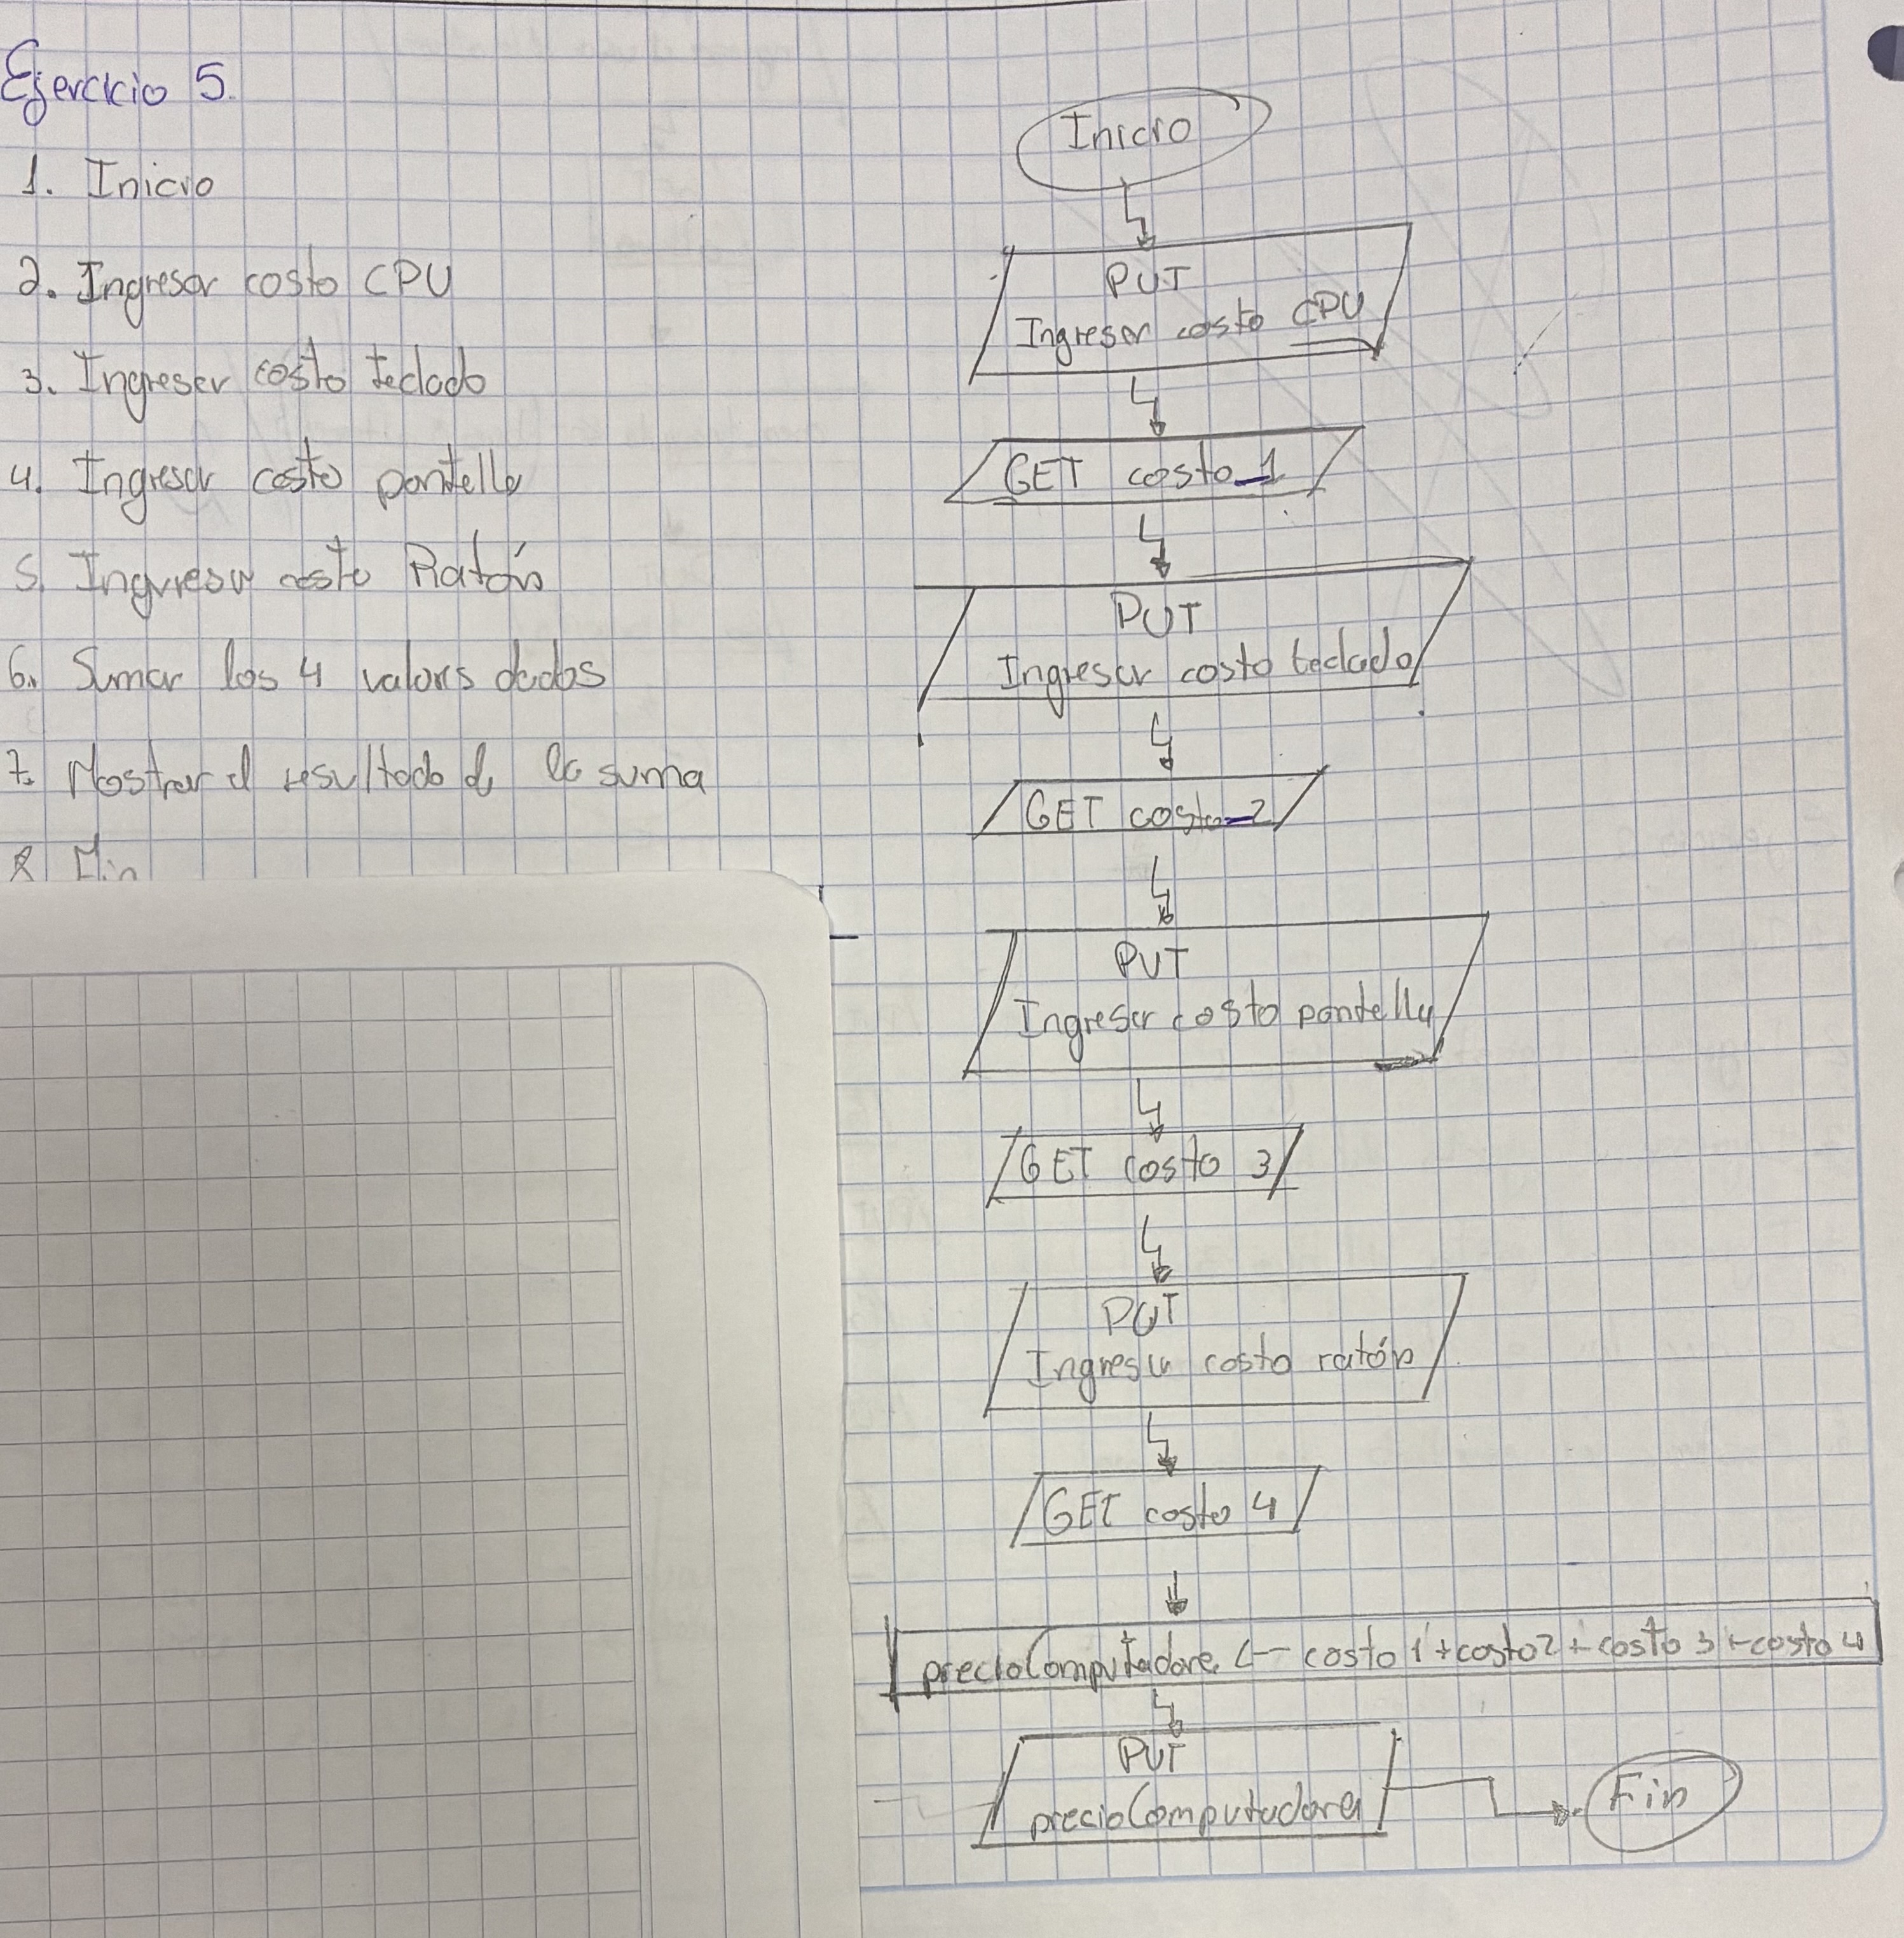 Ejercicio 5.
1. Inicio
2. Ingresar costo CPU
3. Ingresar costo teclado
4. Ingresar costo pantalla
5. Ingresar costo Ratón
6. Sumar los 4 valores dados
7. Mostrar el resultado de la suma
8 Fin
Inicio
PUT
Ingresar costo CPU
GET costo_1
PUT
Ingresar costo teclado
GET costo_2
PUT
Ingresar costo pantalla
GET costo 3
PUT
Ingresar costo ratón
GET costo 4
precioComputadora <- costo 1 + costo 2 + costo 3 + costo 4
PUT
precioComputadora
Fin